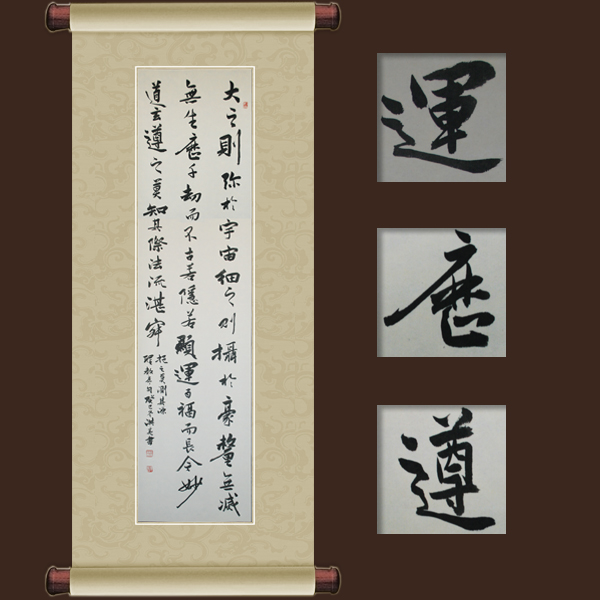 大之則弥於宇宙細之則攝於豪釐無滅
無生歷千劫而不古若隱若顯運百福而長今妙
道玄遵之莫知其際法流湛寂
挹之莫測其源
運
歷
遵